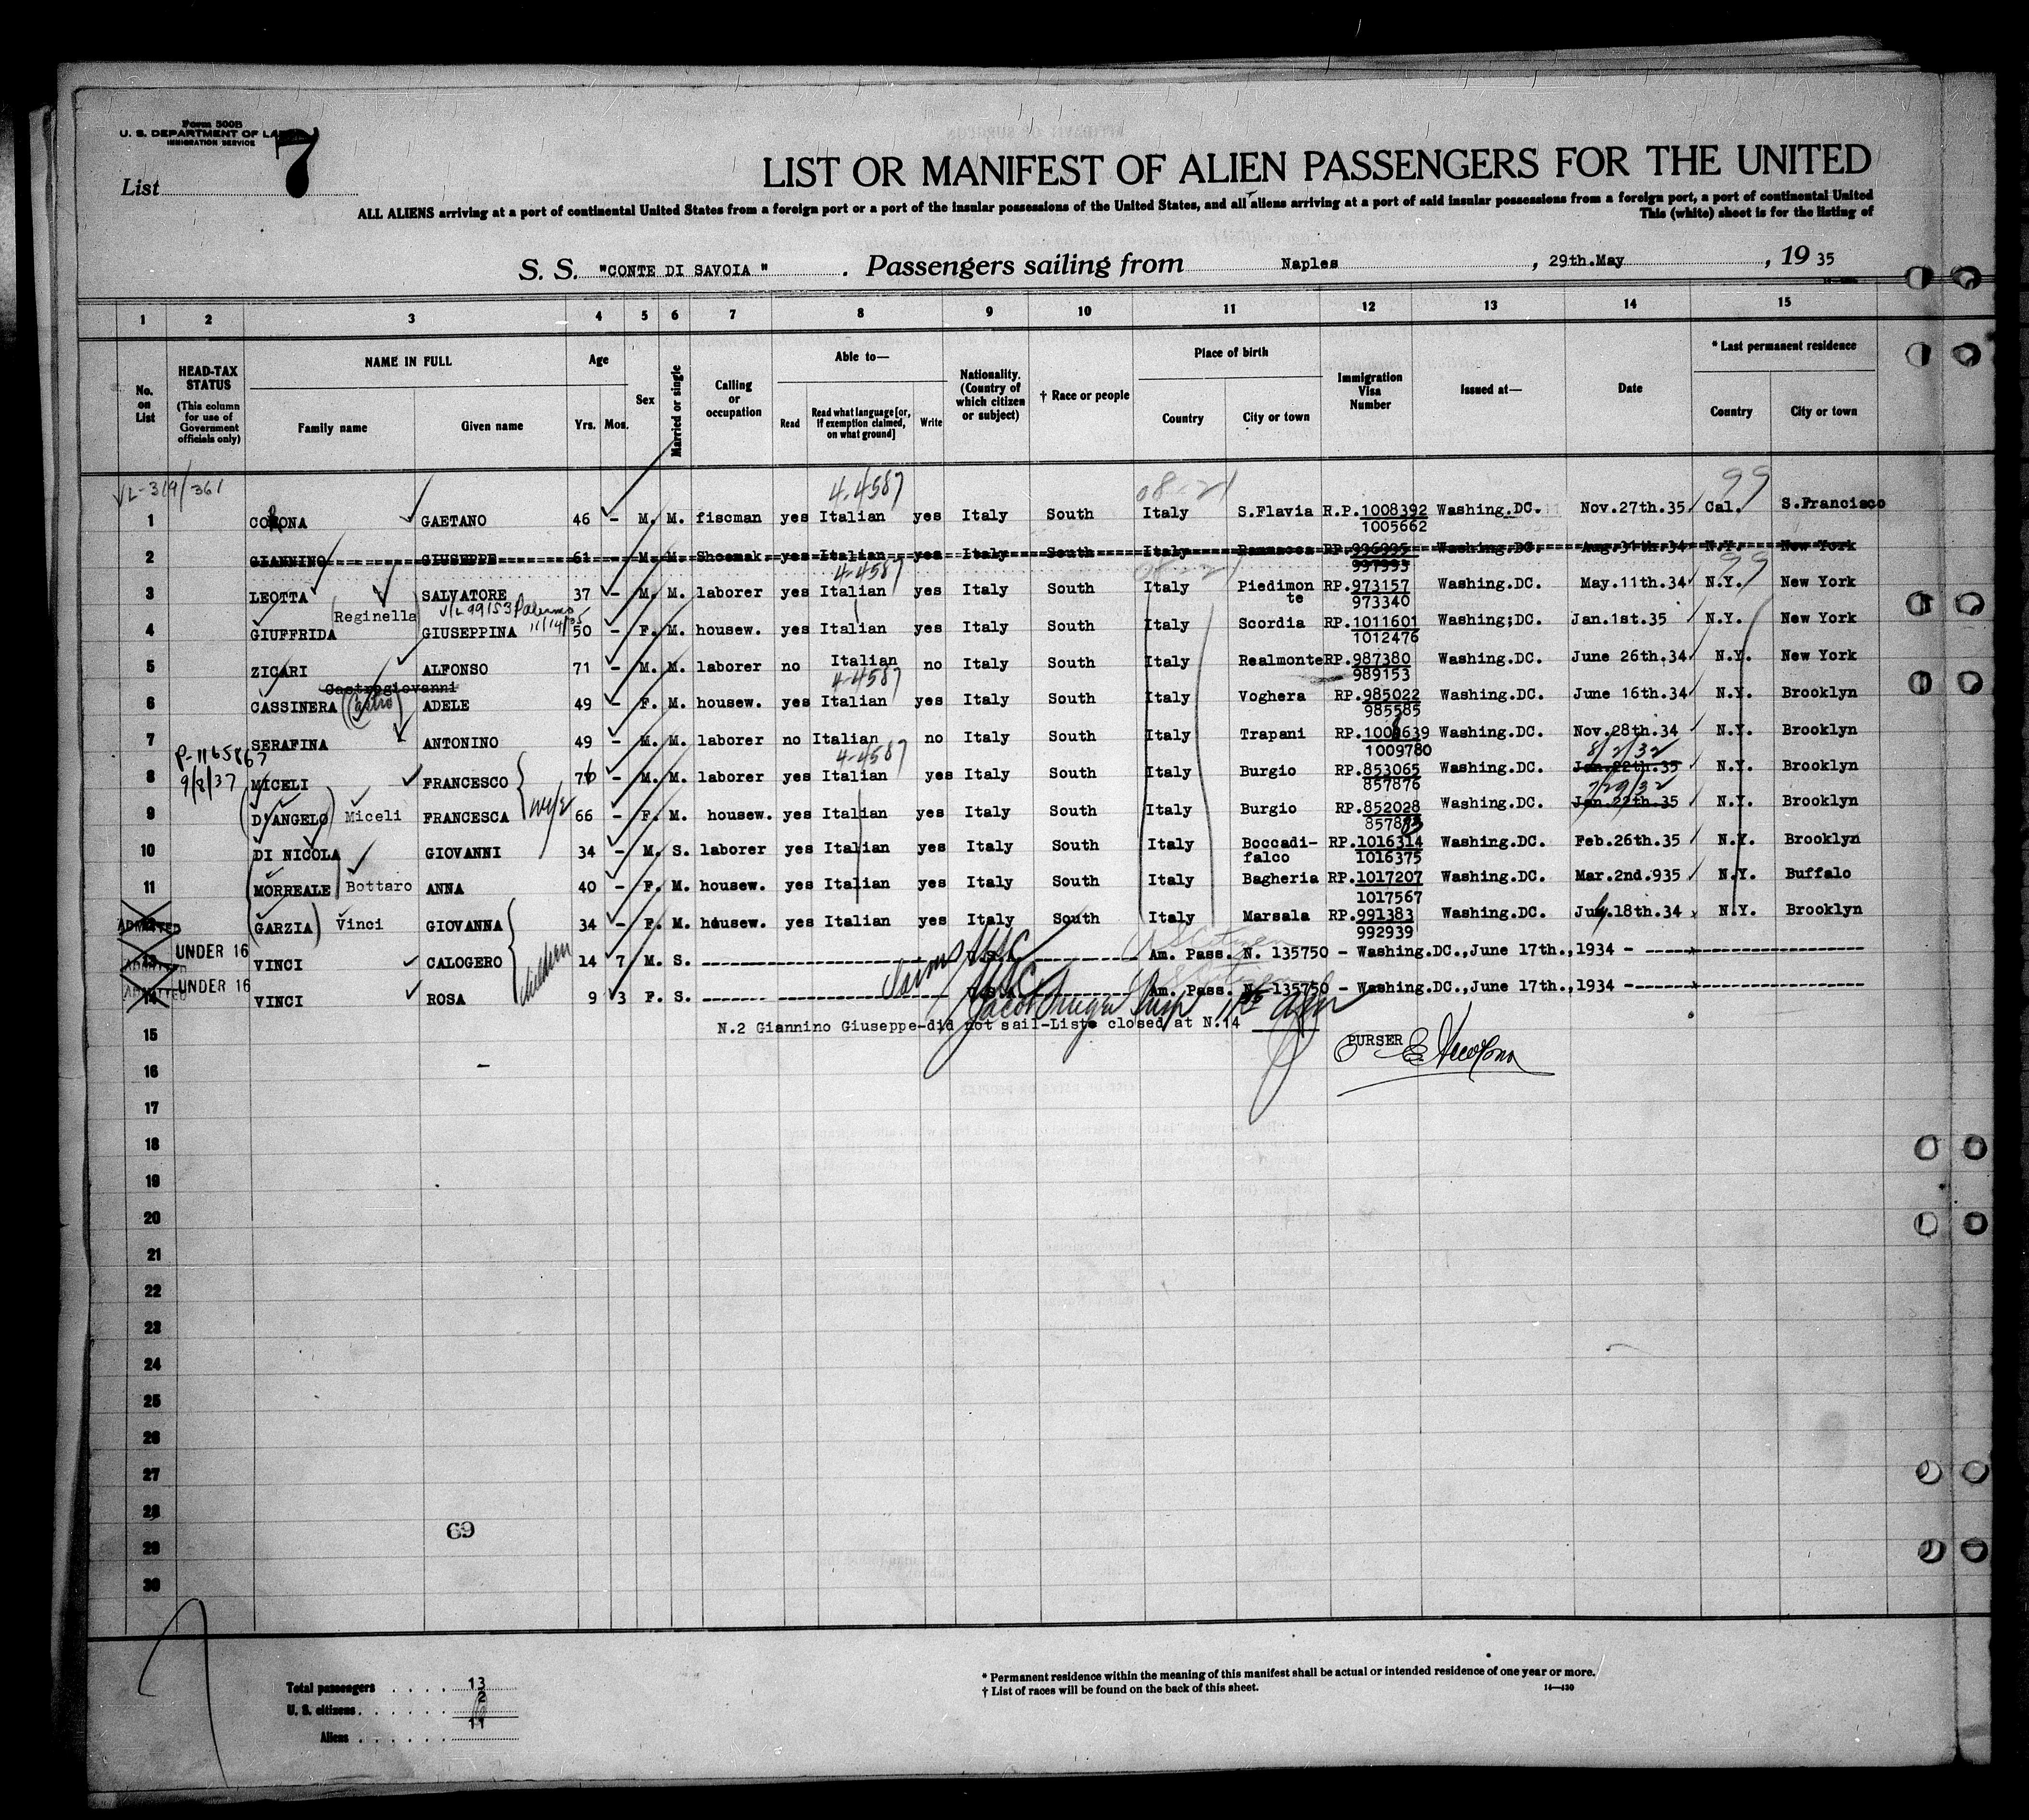 Form 500B
U. S. DEPARTMENT OF
IMMIGRATION SERVICE
7
List
LIST OR MANIFEST OF ALIEN PASSENGERS FOR THE UNITED
ALL ALIENS arriving at a port of continental United States from a foreign port or a port of the insular possessions of the United States, and all aliens arriving at a port of said insular possessions from a foreign port, a port of continental United
This (white) sheet is for the listing of
S. S. "CONTE DI SAVOIA ". Passengers sailing from Naples, 29th.May, 19 35
1 2 3 4 5 6 7 8 9 10 11 12 13 14 15
No. on List
HEAD-TAX STATUS (This column for use of Government officials only)
NAME IN FULL Family name Given name
Age Yrs. Mos.
Sex
Married or single
Calling or occupation
Able to— Read Read what language [or, if exemption claimed, on what ground] Write
Nationality. (Country of which citizen or subject)
† Race or people
Place of birth Country City or town
Immigration Visa Number
Issued at—
Date
* Last permanent residence Country City or town
VL-319/361 4-4587 08-21 99
1 CORONA GAETANO 46 - M. M. fiscman yes Italian yes Italy South Italy S.Flavia R.P.1008392 Washing.DC. Nov.27th.35 Cal. S.Francisco
1005662
2 GIANNINO GIUSEPPE 61 - M. M. Shoemak yes Italian yes Italy South Italy Rammacca RP.996995 Washing.DC. Aug.31th.34 N.Y. New York
997993
4-4587 99
3 LEOTTA SALVATORE 37 - M. M. laborer yes Italian yes Italy South Italy Piedimonte RP.973157 Washing.DC. May.11th.34 N.Y. New York
973340
V/L 99153 Palermo 11/14/35
4 GIUFFRIDA Reginella GIUSEPPINA 50 - F. M. housew. yes Italian yes Italy South Italy Scordia RP.1011601 Washing;DC. Jan.1st.35 N.Y. New York
1012476
5 ZICARI ALFONSO 71 - M. M. laborer no Italian no Italy South Italy Realmonte RP.987380 Washing.DC. June 26th.34 N.Y. New York
989153
Castrogiovanni 4-4587
6 CASSINERA (Castro) ADELE 49 - F. M. housew. yes Italian yes Italy South Italy Voghera RP.985022 Washing.DC. June 16th.34 N.Y. Brooklyn
985585
7 SERAFINA ANTONINO 49 - M. M. laborer no Italian no Italy South Italy Trapani RP.1008639 Washing.DC. Nov.28th.34 N.Y. Brooklyn
1009780
P-1165867 4-4587 8/2/32
8 9/8/37 MICELI FRANCESCO 70 - M. M. laborer yes Italian yes Italy South Italy Burgio RP.853065 Washing.DC. Jan.22th.35 N.Y. Brooklyn
857876
wife 7/29/32
9 (D'ANGELO) Miceli FRANCESCA 66 - F. M. housew. yes Italian yes Italy South Italy Burgio RP.852028 Washing.DC. Jan.22th.35 N.Y. Brooklyn
10 DI NICOLA GIOVANNI 34 - M. S. laborer yes Italian yes Italy South Italy Boccadi-falco RP.1016314 Washing.DC. Feb.26th.35 N.Y. Brooklyn
1016375
11 (MORREALE) Bottaro ANNA 40 - F. M. housew. yes Italian yes Italy South Italy Bagheria RP.1017207 Washing.DC. Mar.2nd.935 N.Y. Buffalo
1017567
ADMITTED (GARZIA) Vinci GIOVANNA 34 - F. M. hausew. yes Italian yes Italy South Italy Marsala RP.991383 Washing.DC. July.18th.34 N.Y. Brooklyn
992939
ADMITTED UNDER 16 VINCI CALOGERO 14 7 M. S. U.S.A US Citizen Am. Pass. N. 135750 - Washing.DC.,June 17th.,1934 -
children
ADMITTED 14 UNDER 16 VINCI ROSA 9 3 F. S. U.S.A US Citizen Am. Pass. N. 135750 - Washing.DC.,June 17th.,1934 -
15 N.2 Giannino Giuseppe-did not sail-Liste closed at N.14
PURSER
16
17
18
19
20
21
22
23
24
25
26
27
28
29
30
69
Total passengers 13
U. S. citizens 2
Aliens 11
* Permanent residence within the meaning of this manifest shall be actual or intended residence of one year or more.
† List of races will be found on the back of this sheet.
14—430